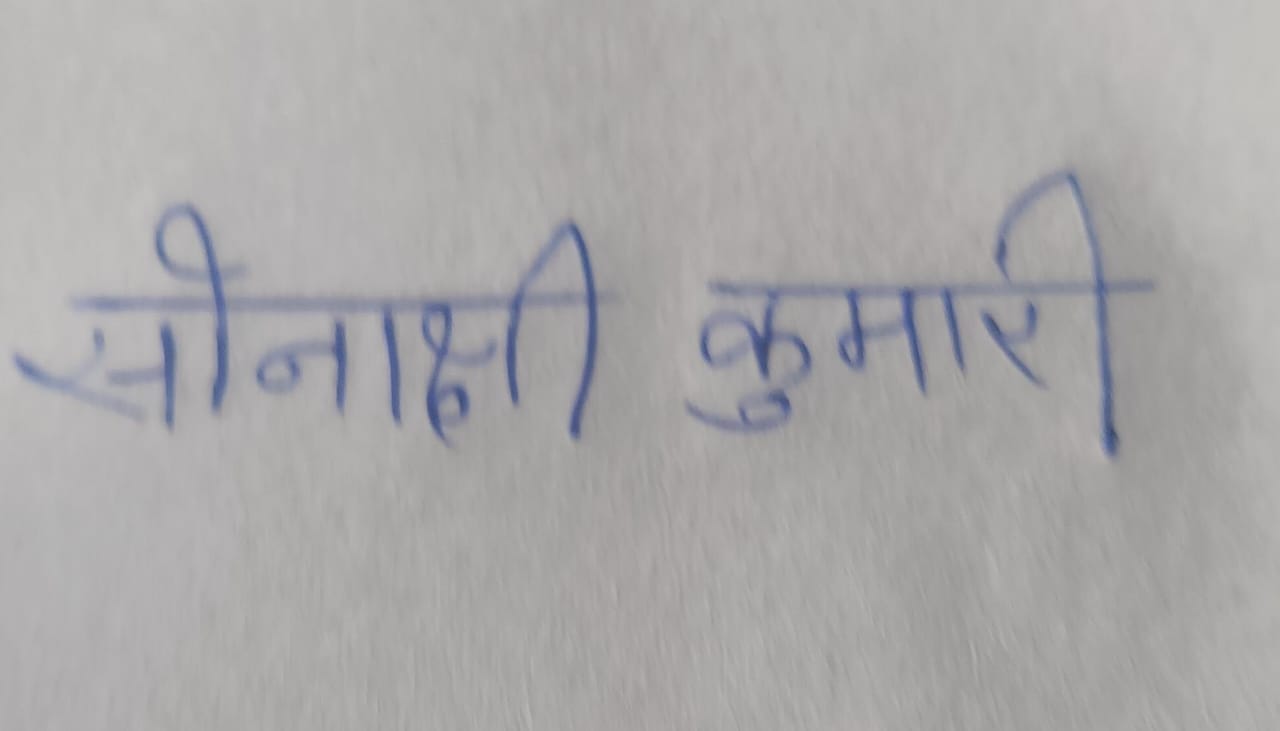 सोनाक्षी कुमारी